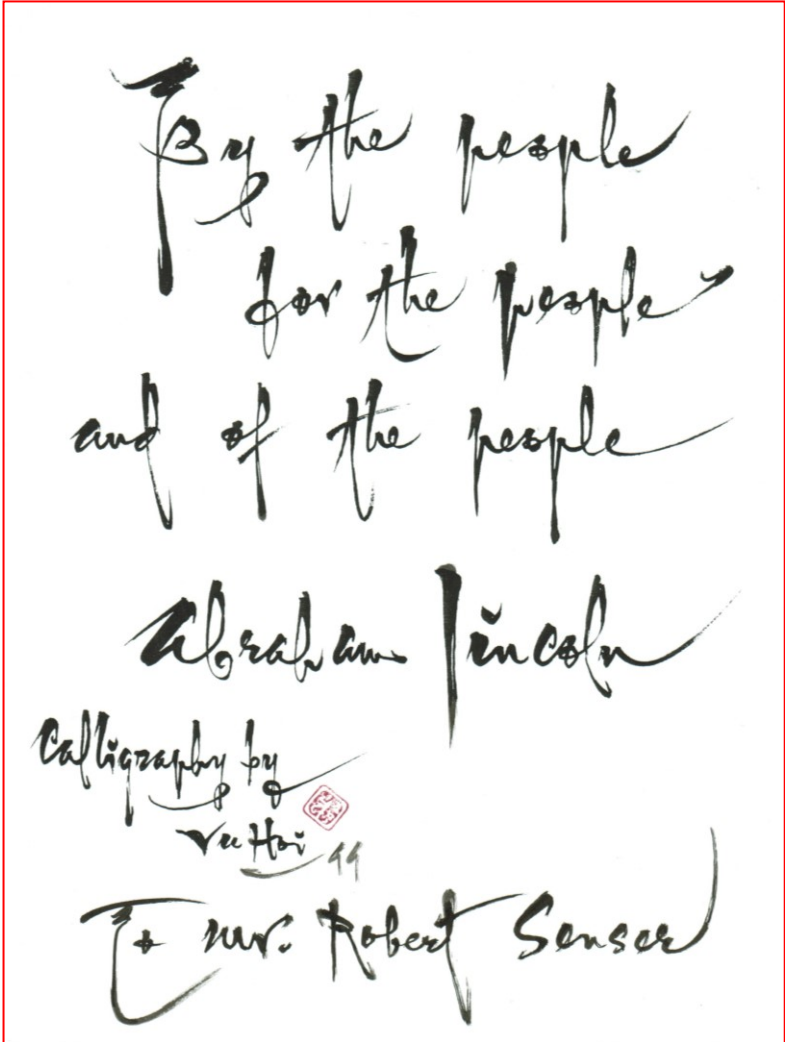 By the people
for the people
and of the people
Abraham Lincoln
Calligraphy by
Vu Hoi 99
To Mr. Robert Senser